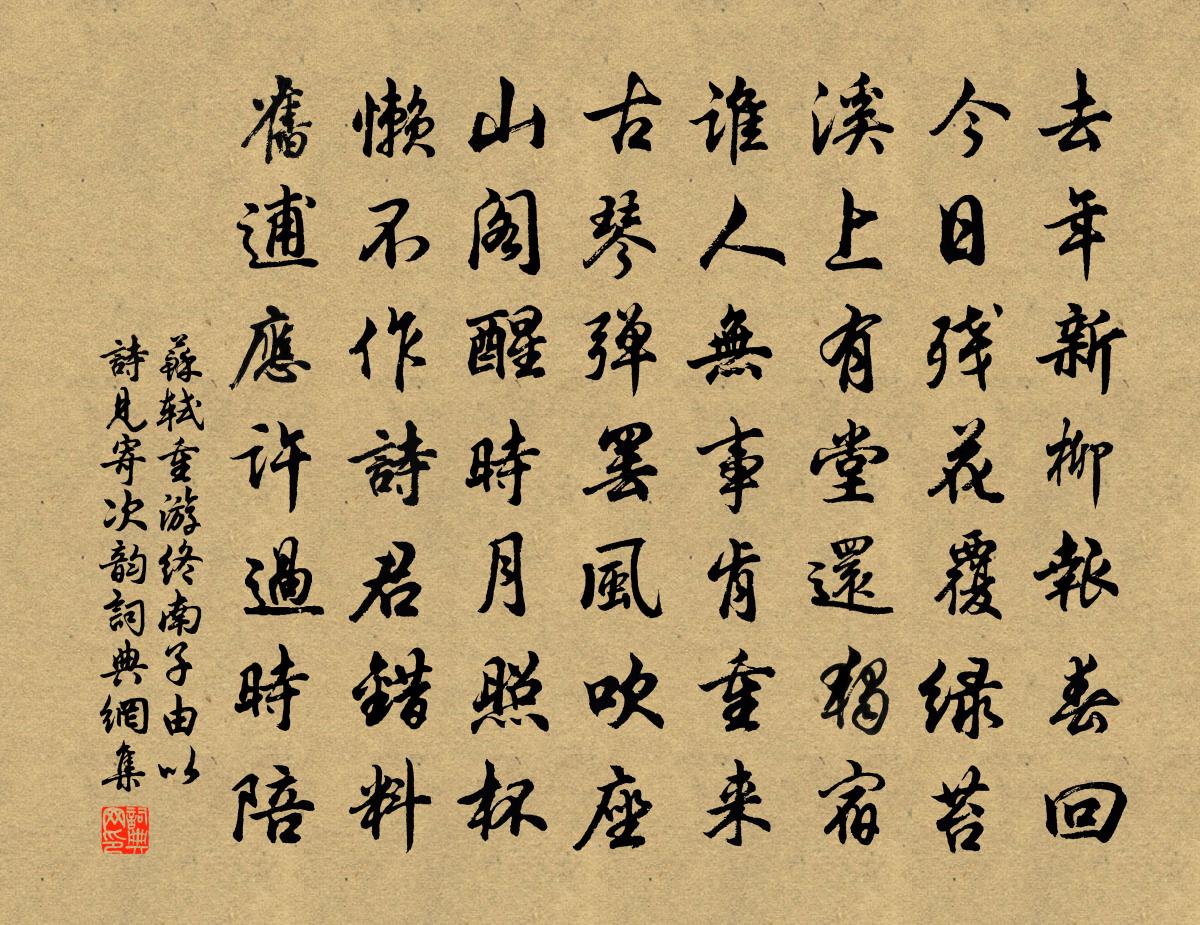 去年新柳報春回
今日残花覆緑苔
溪上有堂還獨宿
誰人無事肯重来
古琴弾罷風吹座
山閣醒時月照杯
懶不作詩君錯料
舊逋應許過時陪
蘇軾重游終南子由以
詩見寄次韵詞典網集
詞典
网印